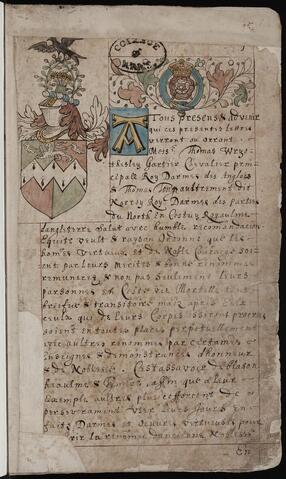 COLLEGE
OF
ARMS
Tous presens & advenir
qui ces presentes lettres
verront ou orront
Mess. Thomas Wryo=
thesley Gartier Chevalier prin=
cipale Roy Darmes des Englois
& Thomas Tonge aultrement dit
Norroy Roy Darmes des parties
du North en Cestuy Royaulme
Salut avec humble recomandacon
Equite veult & rayson Ordonne que les
homes Vertueux & de Noble Courage soi=
ent par leurs merites & bonne renommee
remuneres & non pas Seulement leurs
personnes en Ceste vie Mortelle tant
briefue & transitoire mais apres Eulx
ceulx qui de leurs Corps issiront
soient en toutes places perpetuellement
avec aultres renommes par certaines
Enseignes & demonstrances dhonneur
& de Noblesse. Cestassavoir de Blason
heaulme & Tymbre. affin que a leur
Exemple aultres plus efforcent de
perseverament user leurs Jours en
faits Darmes et Oeuvres vertueuses pour
la renomee danciene Noblesse
En